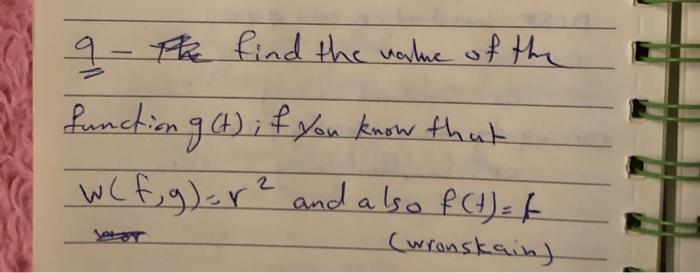 9 - find the value of the
function g(t) if you know that
W(f,g)=r² and also f(t)=t
(wronskain)